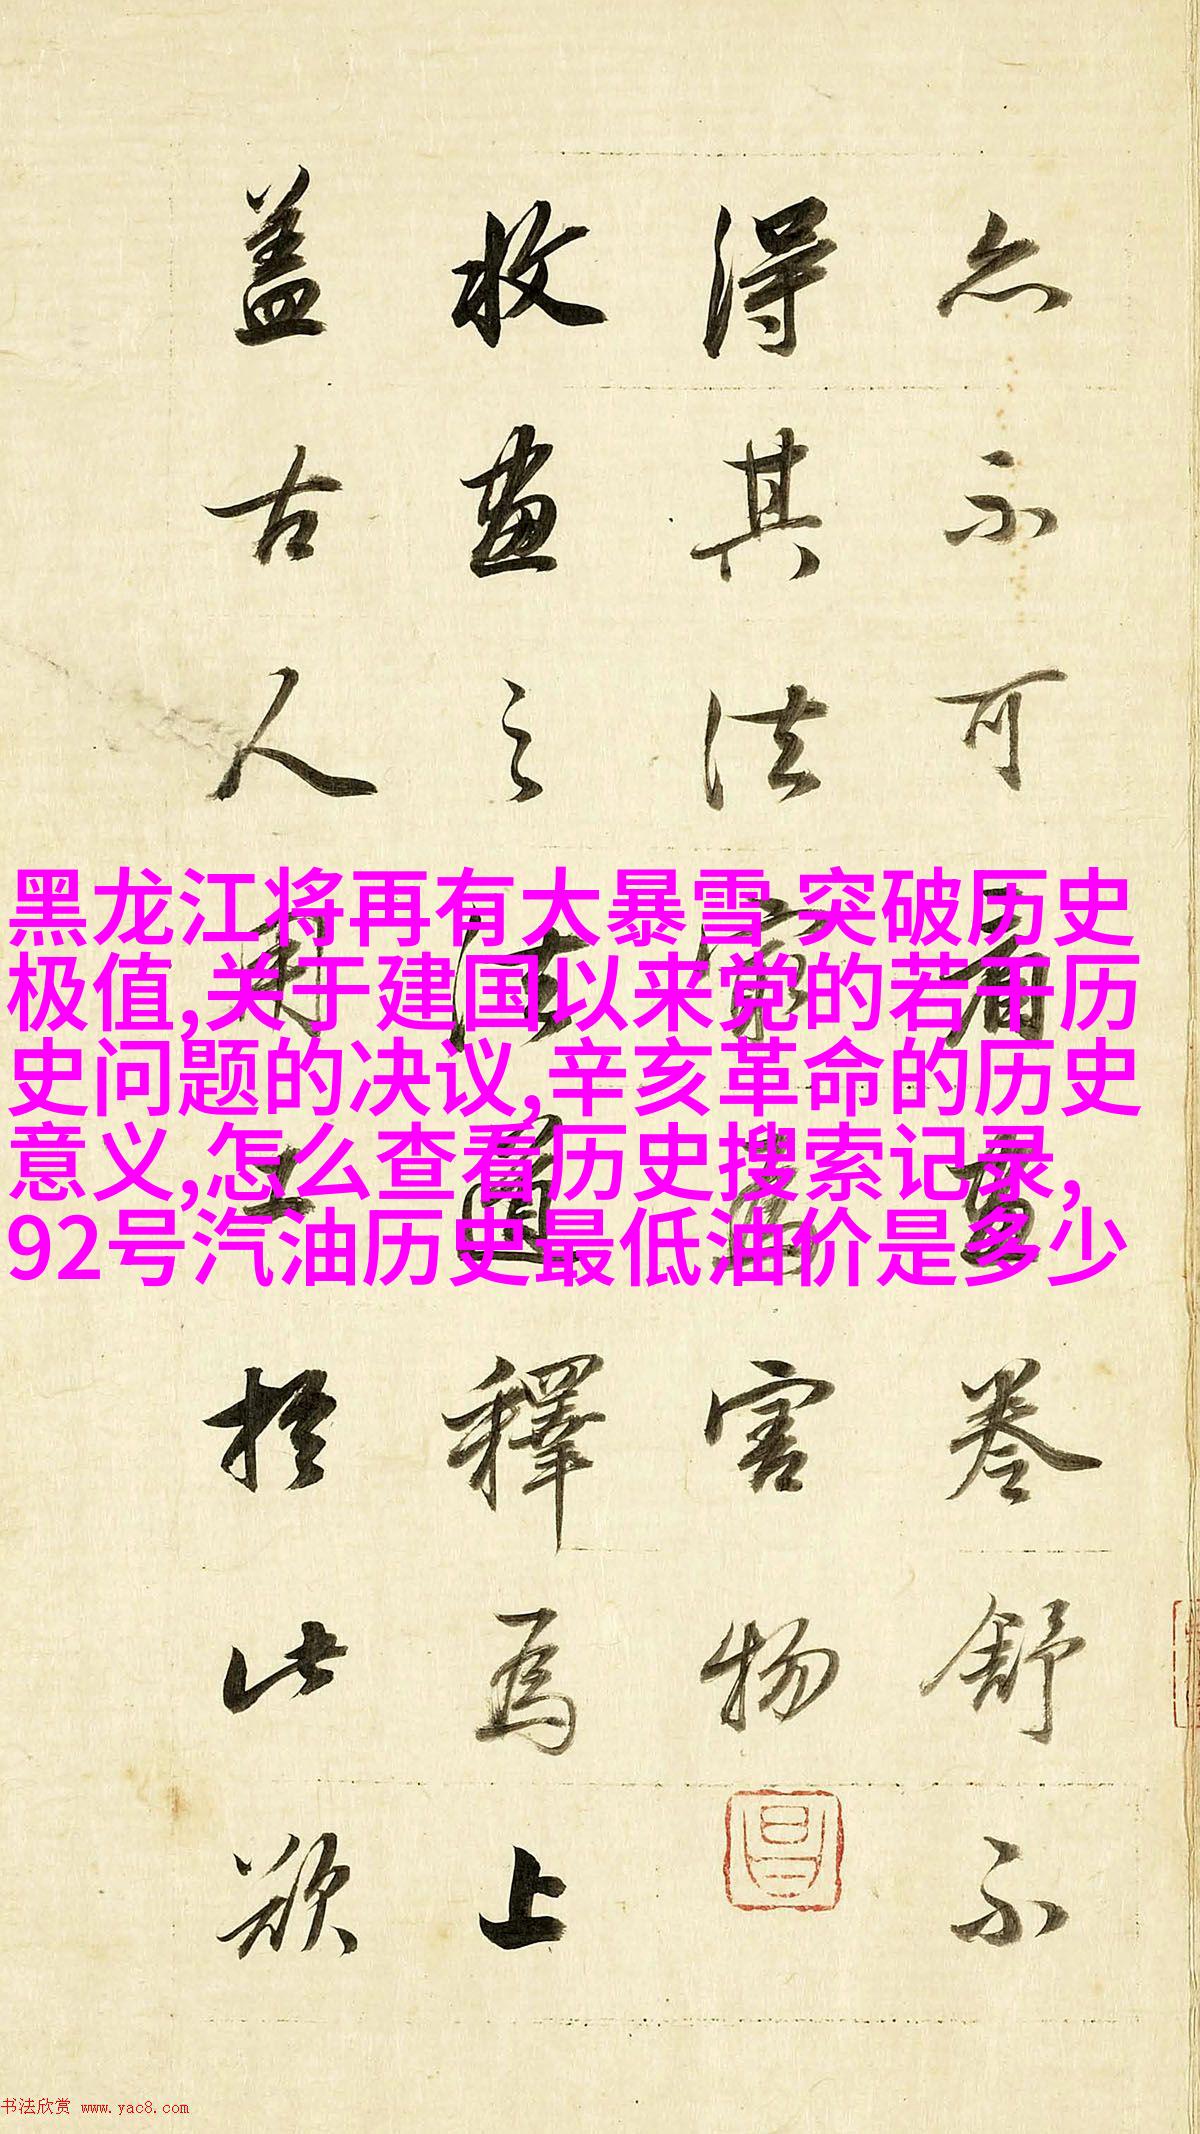 亦不可看畫卷舒不
得其法㝡害物
收畫之法道釋為上
蓋古人用工於此欲
黑龙江将再有大暴雪 突破历史
极值,关于建国以来党的若干历
史问题的决议,辛亥革命的历史
意义,怎么查看历史搜索记录,
92号汽油历史最低油价是多少
书法欣赏 www.yac8.com